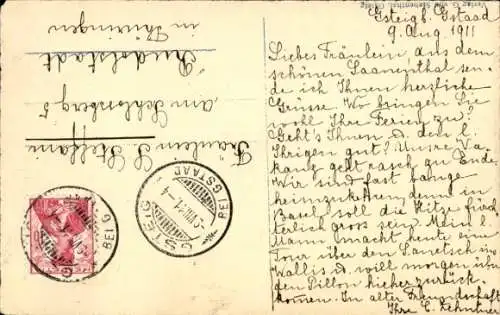 Gsteig b. Gstaad
9. Aug 1911
Liebes Fräulein aus dem
schönen Saanenthal sen-
de ich Ihnen herzliche
Grüsse. Wo bringen Sie
wohl Ihre Ferien zu?
Geht's Ihnen u. dem l.
Ihrigen gut? Unsre Va-
kanz geht rasch zu Ende.
Wir sind fast bange
heimzukehren, denn in
Basel soll die Hitze fürch-
terlich gross sein. Mein l.
Mann macht heute eine
Tour über den Sanetsch ins
Wallis u. will morgen über
den Pillon hieher zurück-
kommen. In alter Freundschaft
Ihre E.
Fräulein S. Steffani
am Schlossberg 5
Rudolstadt
in Thüringen
GSTEIG
BEI GSTAAD
BEI G